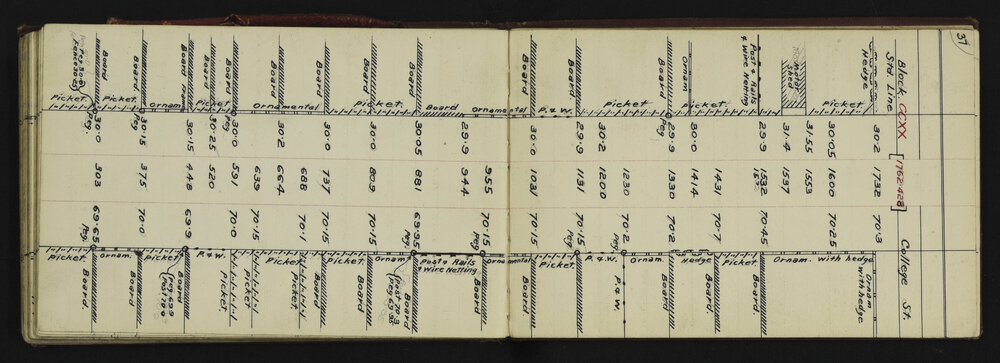 37
Block CCXX [1762.428] College St.
Std. Line
Hedge 30.2 1732 70.3 Ornam with hedge
Picket 30.05 1600 70.25 Ornam. with hedge
Motor Shed 31.55 1553
31.4 1537
Post & Rails & Wire Netting 29.9 1532 70.45 Board
Picket
1431 70.7 Board
Ornam 30.0 1414 Hedge
Board Peg 29.9 1330 70.2 Board
Picket Ornam
1230 70.2 Peg P. & W.
30.2 1200
Board 29.9 1131 70.15 Peg Board
P. & W. Picket
Board 30.0 1031 70.15 Board
Ornamental Ornamental
955 70.15 Peg Board
29.9 944 Post & Rails & Wire Netting
Board 30.05 881 69.95 Peg Board (Post 70.3 Peg 69.95)
Picket Ornam
Board 30.0 809 70.15 Board
Picket Picket
Board 30.0 737 70.15 Board
688 70.1 Picket
Ornamental 30.2 664 Picket
639 70.15 Picket
Board Peg 30.0 591 70.0 Picket
Board 30.25 520 P. & W.
Board Ornam 30.15 448 69.9 (Peg 69.9 Post 70.0)
Ornam Picket
Board Peg 30.15 375 70.0 Board
Picket Picket
Board Peg 30.0 303 69.65 Peg Board.
Picket (Peg 30.0 Fence 30.2) Picket